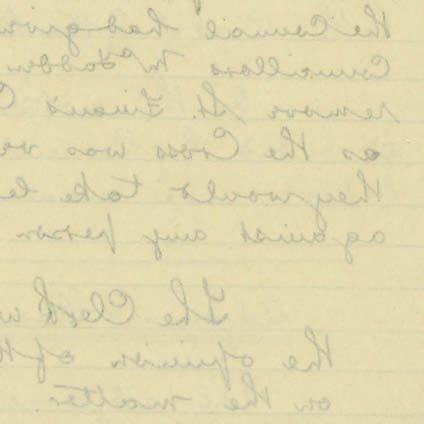 the Council had given
Councillors McFadden
remove St. Finan's C
as the Cross was ve
they would take le
against any person.
The Clerk w
the opinion of th
on the matter.